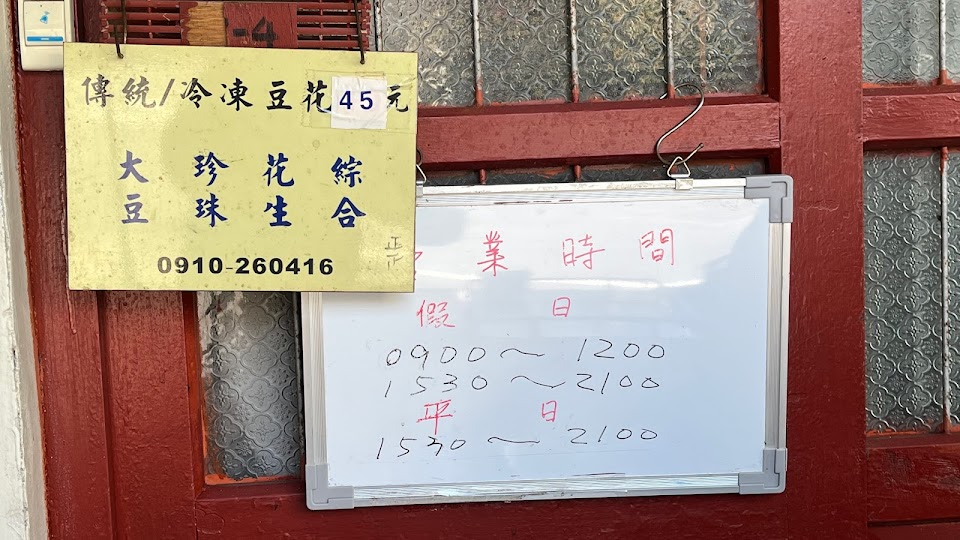 傳統/冷凍豆花45元
大豆 珍珠 花生 綜合
0910-260416
業時間
假日
0900～1200
1530～2100
平日
1530～2100